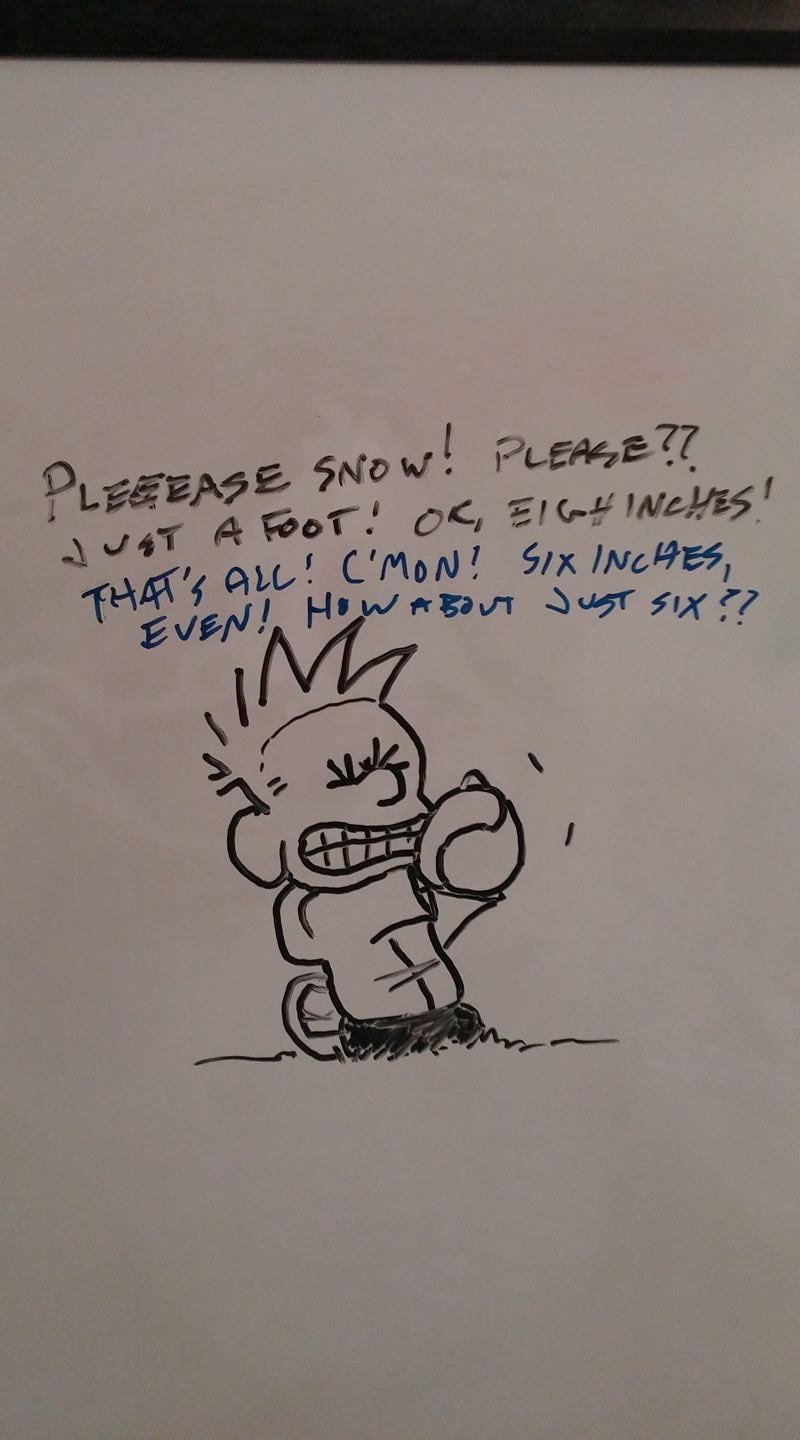 PLEEEEASE SNOW! PLEASE??
JUST A FOOT! OK, EIGH INCHES!
THAT'S ALL! C'MON! SIX INCHES,
EVEN! HOW ABOUT JUST SIX??